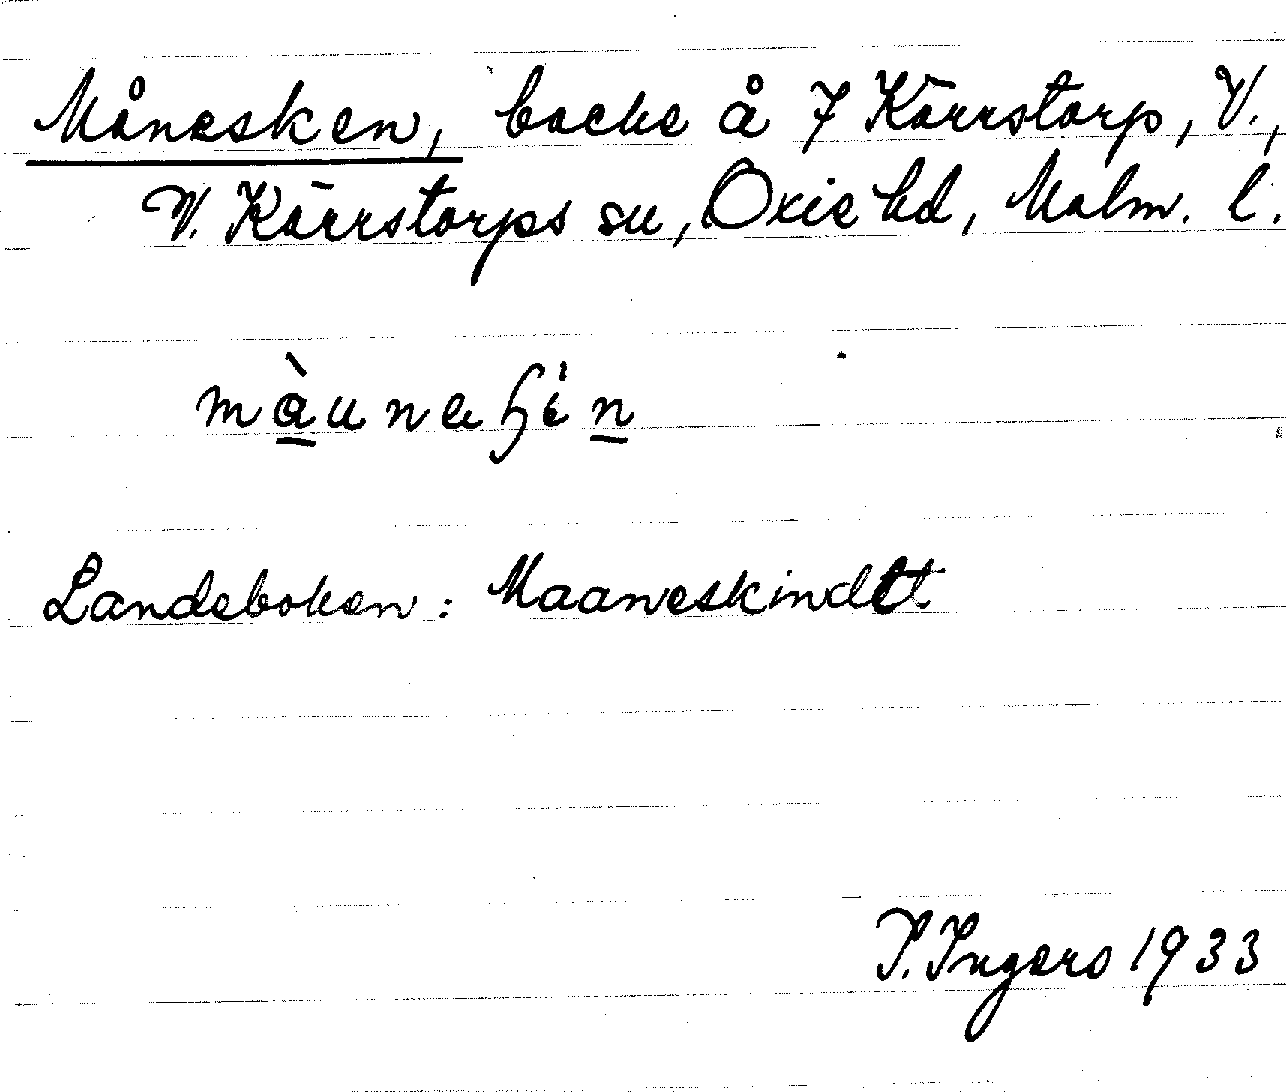 Månesken, backe å 7 Kärrstorp, V.,
V. Kärrstorps sn, Oxie hd, Malm. l.
Landeboken: Maaneskindet
I. Ingers 1933